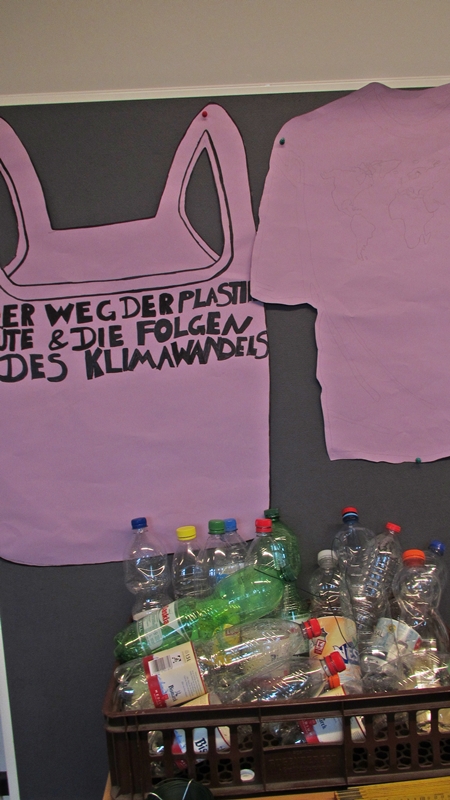 ER WEG DER PLASTI
UTE & DIE FOLGEN
DES KLIMAWANDELS